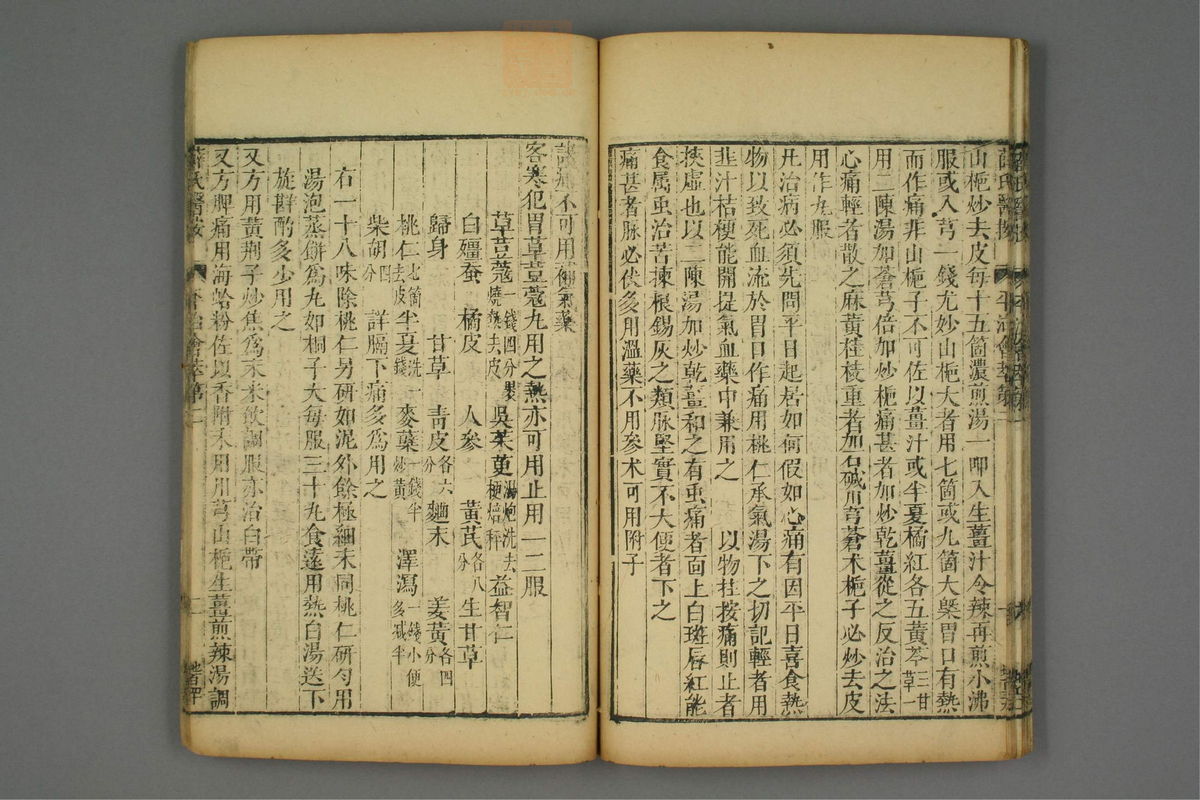 山梔炒去皮每十五箇濃煎湯一呷入生薑汁令辣再煎小沸
服或入芎一錢尤妙山梔大者用七箇或九箇大槩胃口有熱
而作痛非山梔子不可佐以薑汁或半夏橘紅各五黃芩三甘草一
用二陳湯加蒼芎倍加炒梔痛甚者加炒乾薑從之反治之法
心痛輕者散之麻黃桂枝重者加石碱川芎蒼朮梔子必炒去皮
用作丸服
凡治病必須先問平日起居如何假如心痛有因平日喜食熱
物以致死血流於胃口作痛用桃仁承氣湯下之切記輕者用
韭汁桔梗能開提氣血藥中兼用之　以物拄按痛則止者
挾虛也以二陳湯加炒乾薑和之有虫痛者面上白斑唇紅能
食属虫治苦楝根錫灰之類脉堅實不大便者下之
痛甚者脉必伏多用溫藥不用參术可用附子
諸痛不可用補氣藥
客寒犯胃草荳蔻丸用之熱亦可用止用一二服
草荳蔻一錢四分裂燒熱去皮　吳茱萸湯炮洗去梗焙秤　益智仁
白殭蚕　橘皮　人參　黃芪各八分　生甘草
歸身　甘草　青皮各六分　麯末　姜黃各四分
桃仁七箇去皮　半夏洗一錢　麥蘗一錢半炒黃　澤瀉一錢小便多减半
柴胡四分　詳膈下痛多爲用之
右一十八味除桃仁另研如泥外餘極細末同桃仁研勻用
湯泡蒸餅爲丸如桐子大每服三十丸食遠用熱白湯送下
旋斟酌多少用之
又方用黃荊子炒焦爲末米飲調服亦治白帶
又方脾痛用海蛤粉佐以香附末用川芎山梔生薑煎辣湯調
薛氏醫按